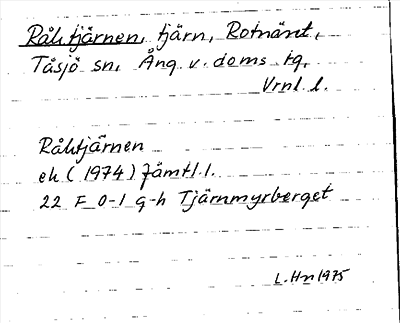 Råhtjärnen, tjärn, Rotnäset,
Tåsjö sn, Ång. v. doms. tg,
Vrnl. l.
Råhtjärnen
ek (1974) Jämtl. l.
22 F 0-1 g-h Tjärnmyrberget
L. Hn 1975